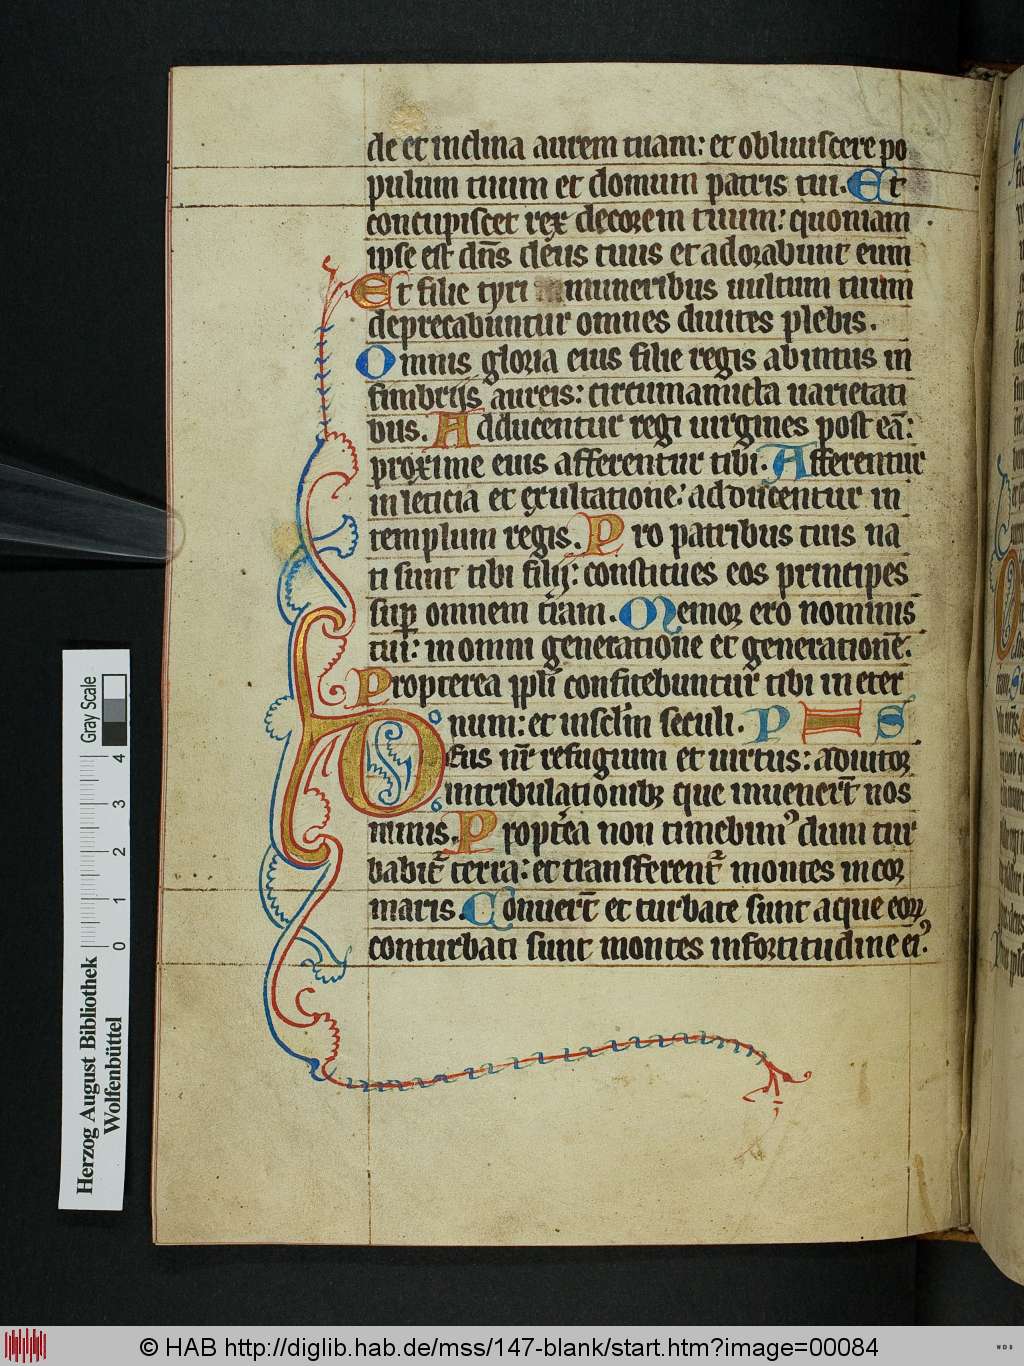 de et inclina aurem tuam: et obliuiscere po
pulum tuum et domum patris tui. Et
concupiscet rex decorem tuum: quoniam
ipse est dn̄s deus tuus et adorabunt eum
Et filie tyri muneribus uultum tuum
deprecabuntur omnes diuites plebis.
Omnis gloria eius filie regis abintus in
fimbrijs aureis: circumamicta uarietati
bus. Adducentur regi uirgines post eā:
proxime eius afferentur tibi. Afferentur
in leticia et exultatione: adducentur in
templum regis. Pro patribus tuis na
ti sunt tibi filij: constitues eos principes
sup̄ omnem t̄ram. Memor ero nominis
tui: in omni generatione et generatione:
Propterea ppl̄i confitebuntur tibi in eter
num: et in sc̄lm seculi. P H S
Deus nr̄ refugium et uirtus: adiutor
in tribulationibꝫ que inuener̄t nos
nimis. Propt̄ea non timebimꝰ dum tur
babit̄ terra: et transferent̄ montes in cor
maris. Conuer̄t et turbate sunt aque eoꝝ
conturbati sunt montes in fortitudine eiꝰ.
Herzog August Bibliothek
Wolfenbüttel
Gray Scale
0 1 2 3 4
© HAB http://diglib.hab.de/mss/147-blank/start.htm?image=00084